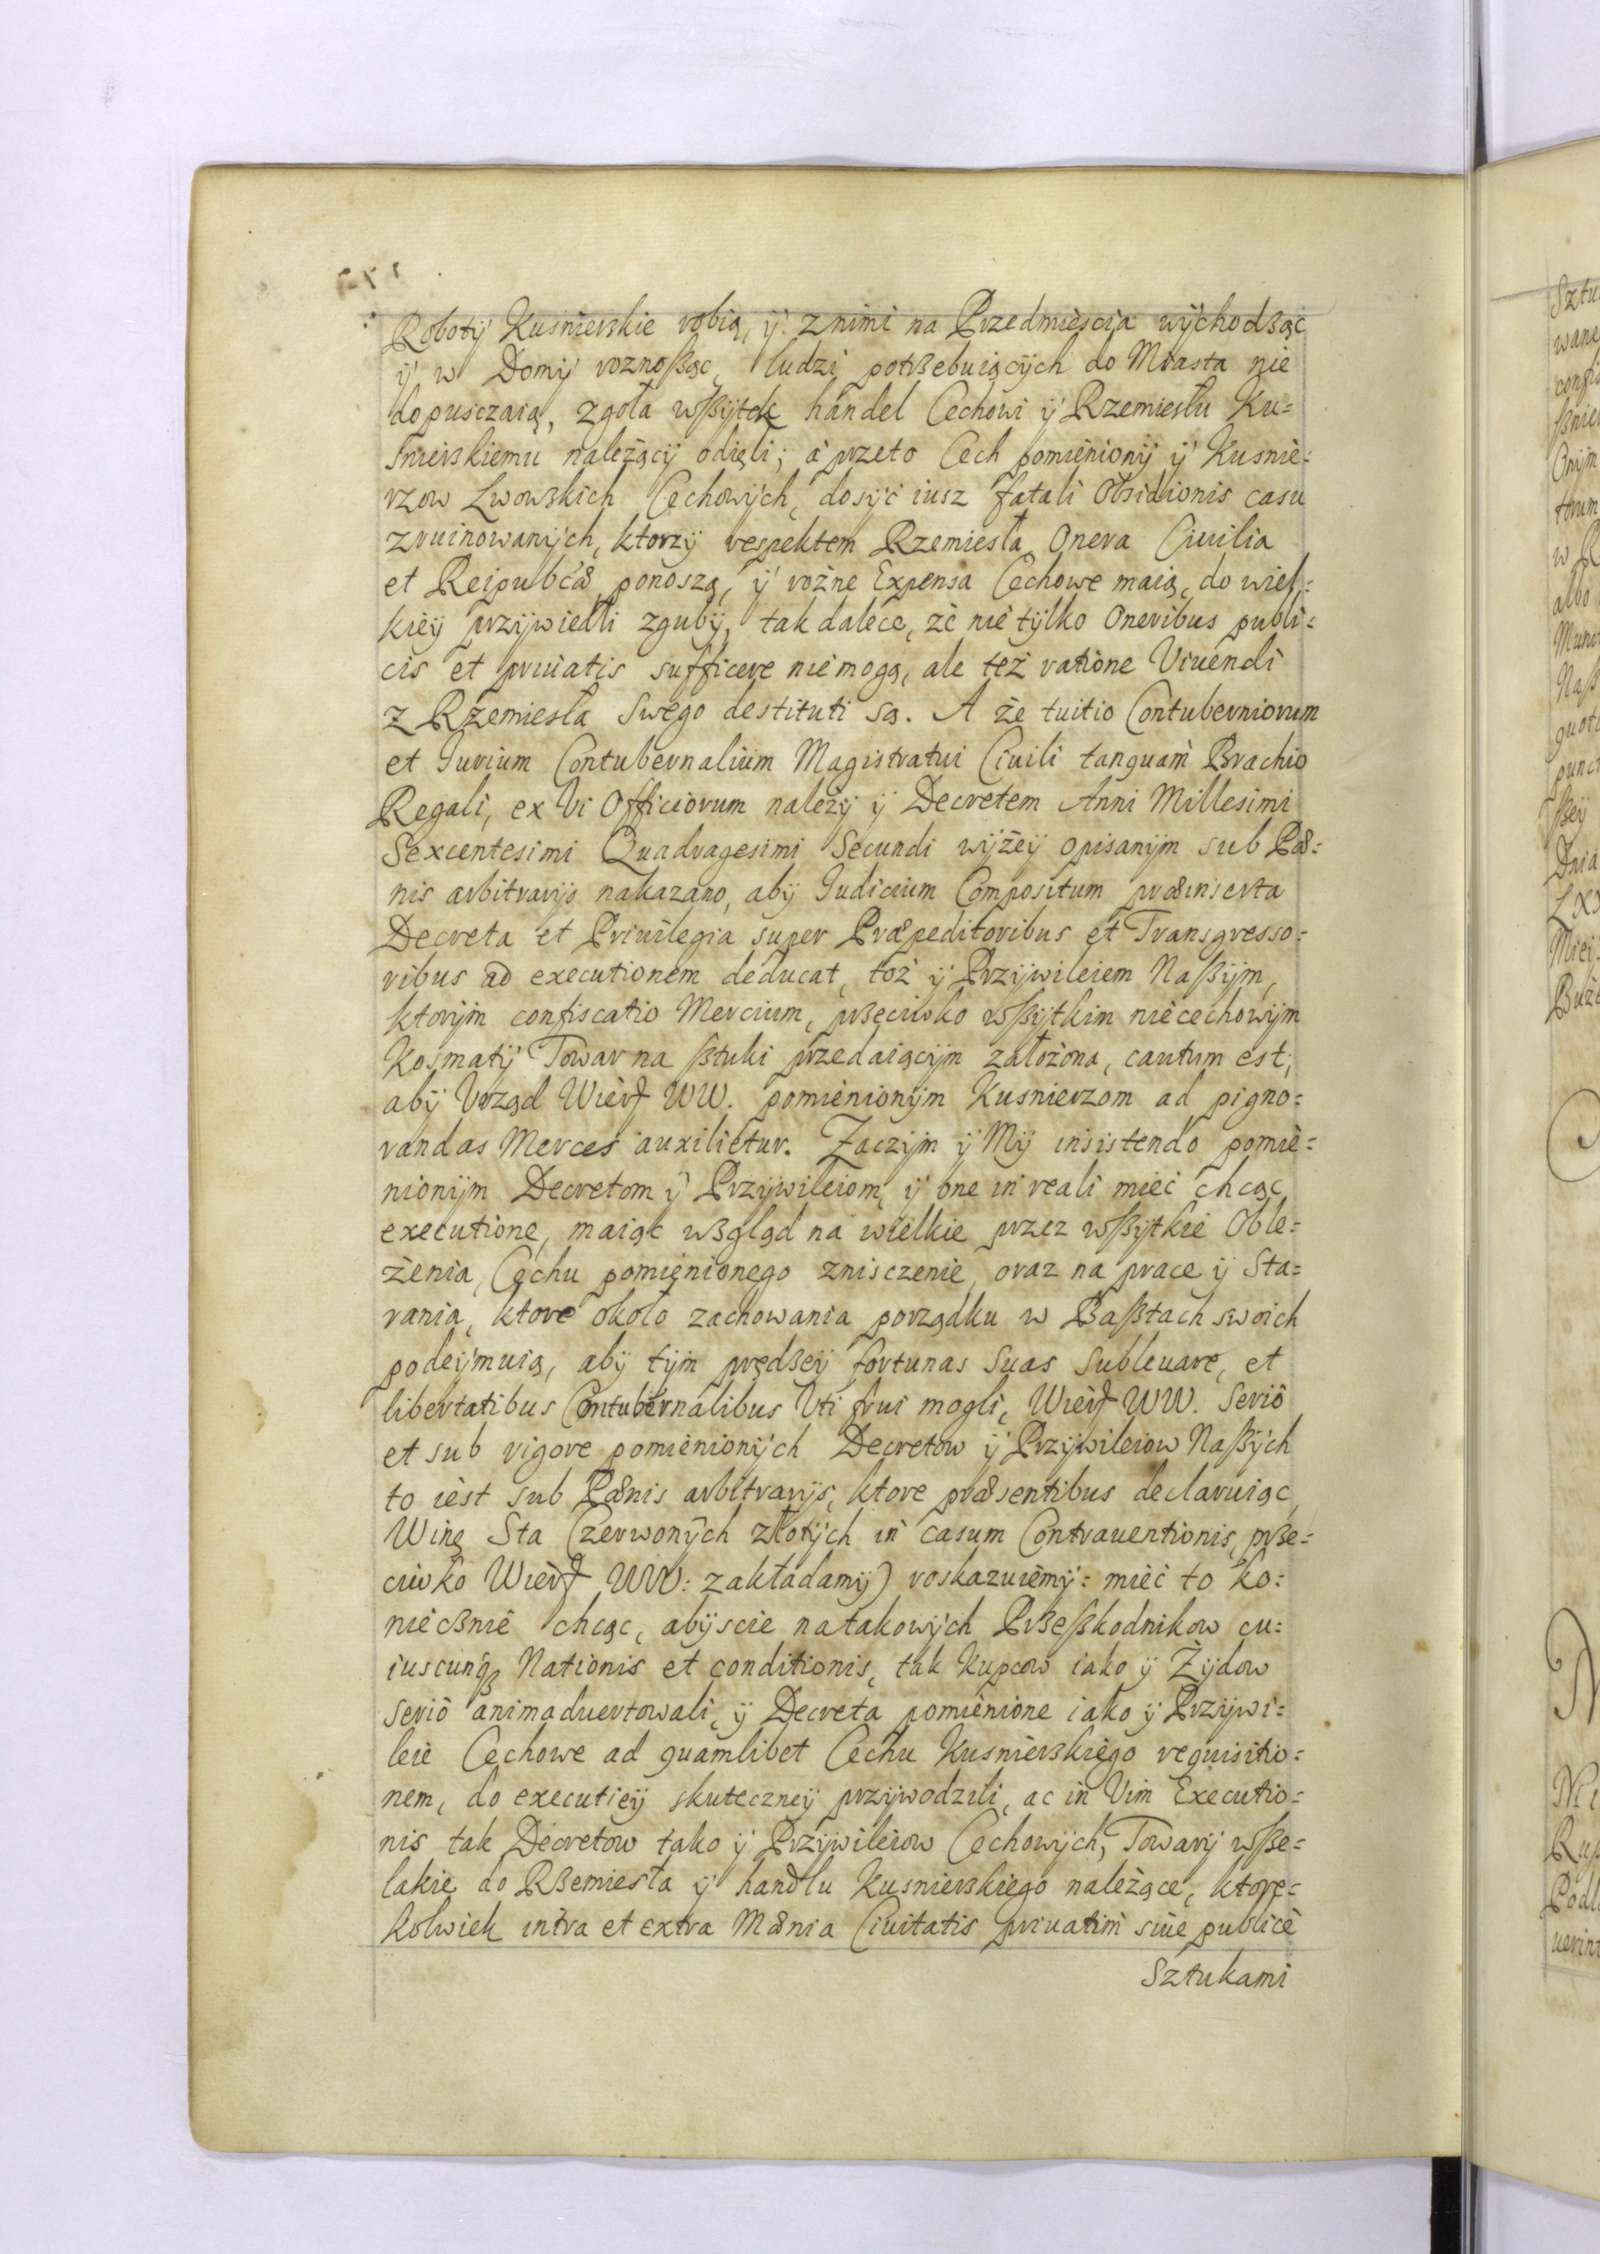 Roboty Kusnierskie robią, ÿ znimi na Przedmiescia wychodßąc
ÿ w Domÿ roznoßąc, ludzi potrßebuiącÿch do Miasta nie
dopusczaią, zgoła wßÿtek handel Cechowi ÿ Rzemiesłu Ku=
snierskiemu należącÿ odięli; à przeto Cech pomienionÿ ÿ Kusnie=
rzow Lwowskich Cechowÿch, dosÿć iusz fatali Obsidionis casu
zruinowanÿch, ktorzÿ respektem Rzemiesła Onera Ciuilia
et Reipubcæ ponoszą, ÿ rożne Expensa Cechowe maią, do wiel=
kieÿ przÿwiedli zgubÿ, tak dalece, że nie tÿlko Oneribus publi=
cis et priuatis sufficere niemogą, ale też ratione Viuendi
z Rzemiesła Swego destituti są. A że tuitio Contuberniorum
et Iurium Contubernalium Magistratui Ciuili tanquam Brachio
Regali, ex Vi Officiorum należÿ ÿ Decretem Anni Millesimi
Sexcentesimi Quadragesimi Secundi wÿżeÿ opisanÿm sub Pæ=
nis arbitrarÿs nakazano, abÿ Iudicium Compositum præinserta
Decreta et Priuilegia super Præpeditoribus et Transgresso=
ribus ad executionem deducat, toż ÿ Przÿwileiem Naßÿm,
ktorÿm confiscatio Mercium, prßeciwko wßÿtkim niecechowÿm
Kosmatÿ Towar na ßtuki przedaiącÿm założona, cautum est,
abÿ Vrząd Wierſ WW. pomienionÿm Kusnierzom ad pigno=
randas Merces auxilietur. Zaczÿm ÿ Mÿ insistendo pomie=
nionÿm Decretom ÿ Przÿwileiom, ÿ one in reali mieć chcąc
executione, maiąc wßgląd na wielkie przez wßÿtkie Oble=
żenia, Cechu pomienionego znisczenie, oraz na prace ÿ Sta=
rania, ktore około zachowania porządku w Baßtach swoich
podeÿmuią, abÿ tÿm prędßeÿ fortunas Suas Subleuare, et
libertatibus Contubernalibus Vti frui mogli, Wierſ WW. Seriò
et sub rigore pomienionÿch Decretow ÿ Przÿwileiow Naßÿch
to iest sub Pænis arbitrarÿs, ktore præsentibus declaruiąc,
Winę Sta Czerwonÿch złotÿch in casum Contrauentionis, prße=
ciwko Wierſ WW: zakładamÿ) roskazuiemÿ: mieć to ko=
niecßnie chcąc, abÿscie natakowÿch Prßeßkodnikow cu=
iuscunqꝫ Nationis et conditionis, tak Kupcow iako ÿ Żÿdow
seriò animaduertowali, ÿ Decreta pomienione iako ÿ Przÿwi=
leie Cechowe ad quamlibet Cechu Kusnierskiego requisitio=
nem, do executieÿ skuteczneÿ przÿwodzili, ac in Vim Executio=
nis tak Decretow iako ÿ Przÿwileiow Cechowÿch, Towarÿ wße=
lakie do Rßemiesła ÿ handlu Kusnierskiego należące, ktore=
kolwiek intra et extra Mænia Ciuitatis priuatim siue publicè
Sztukami